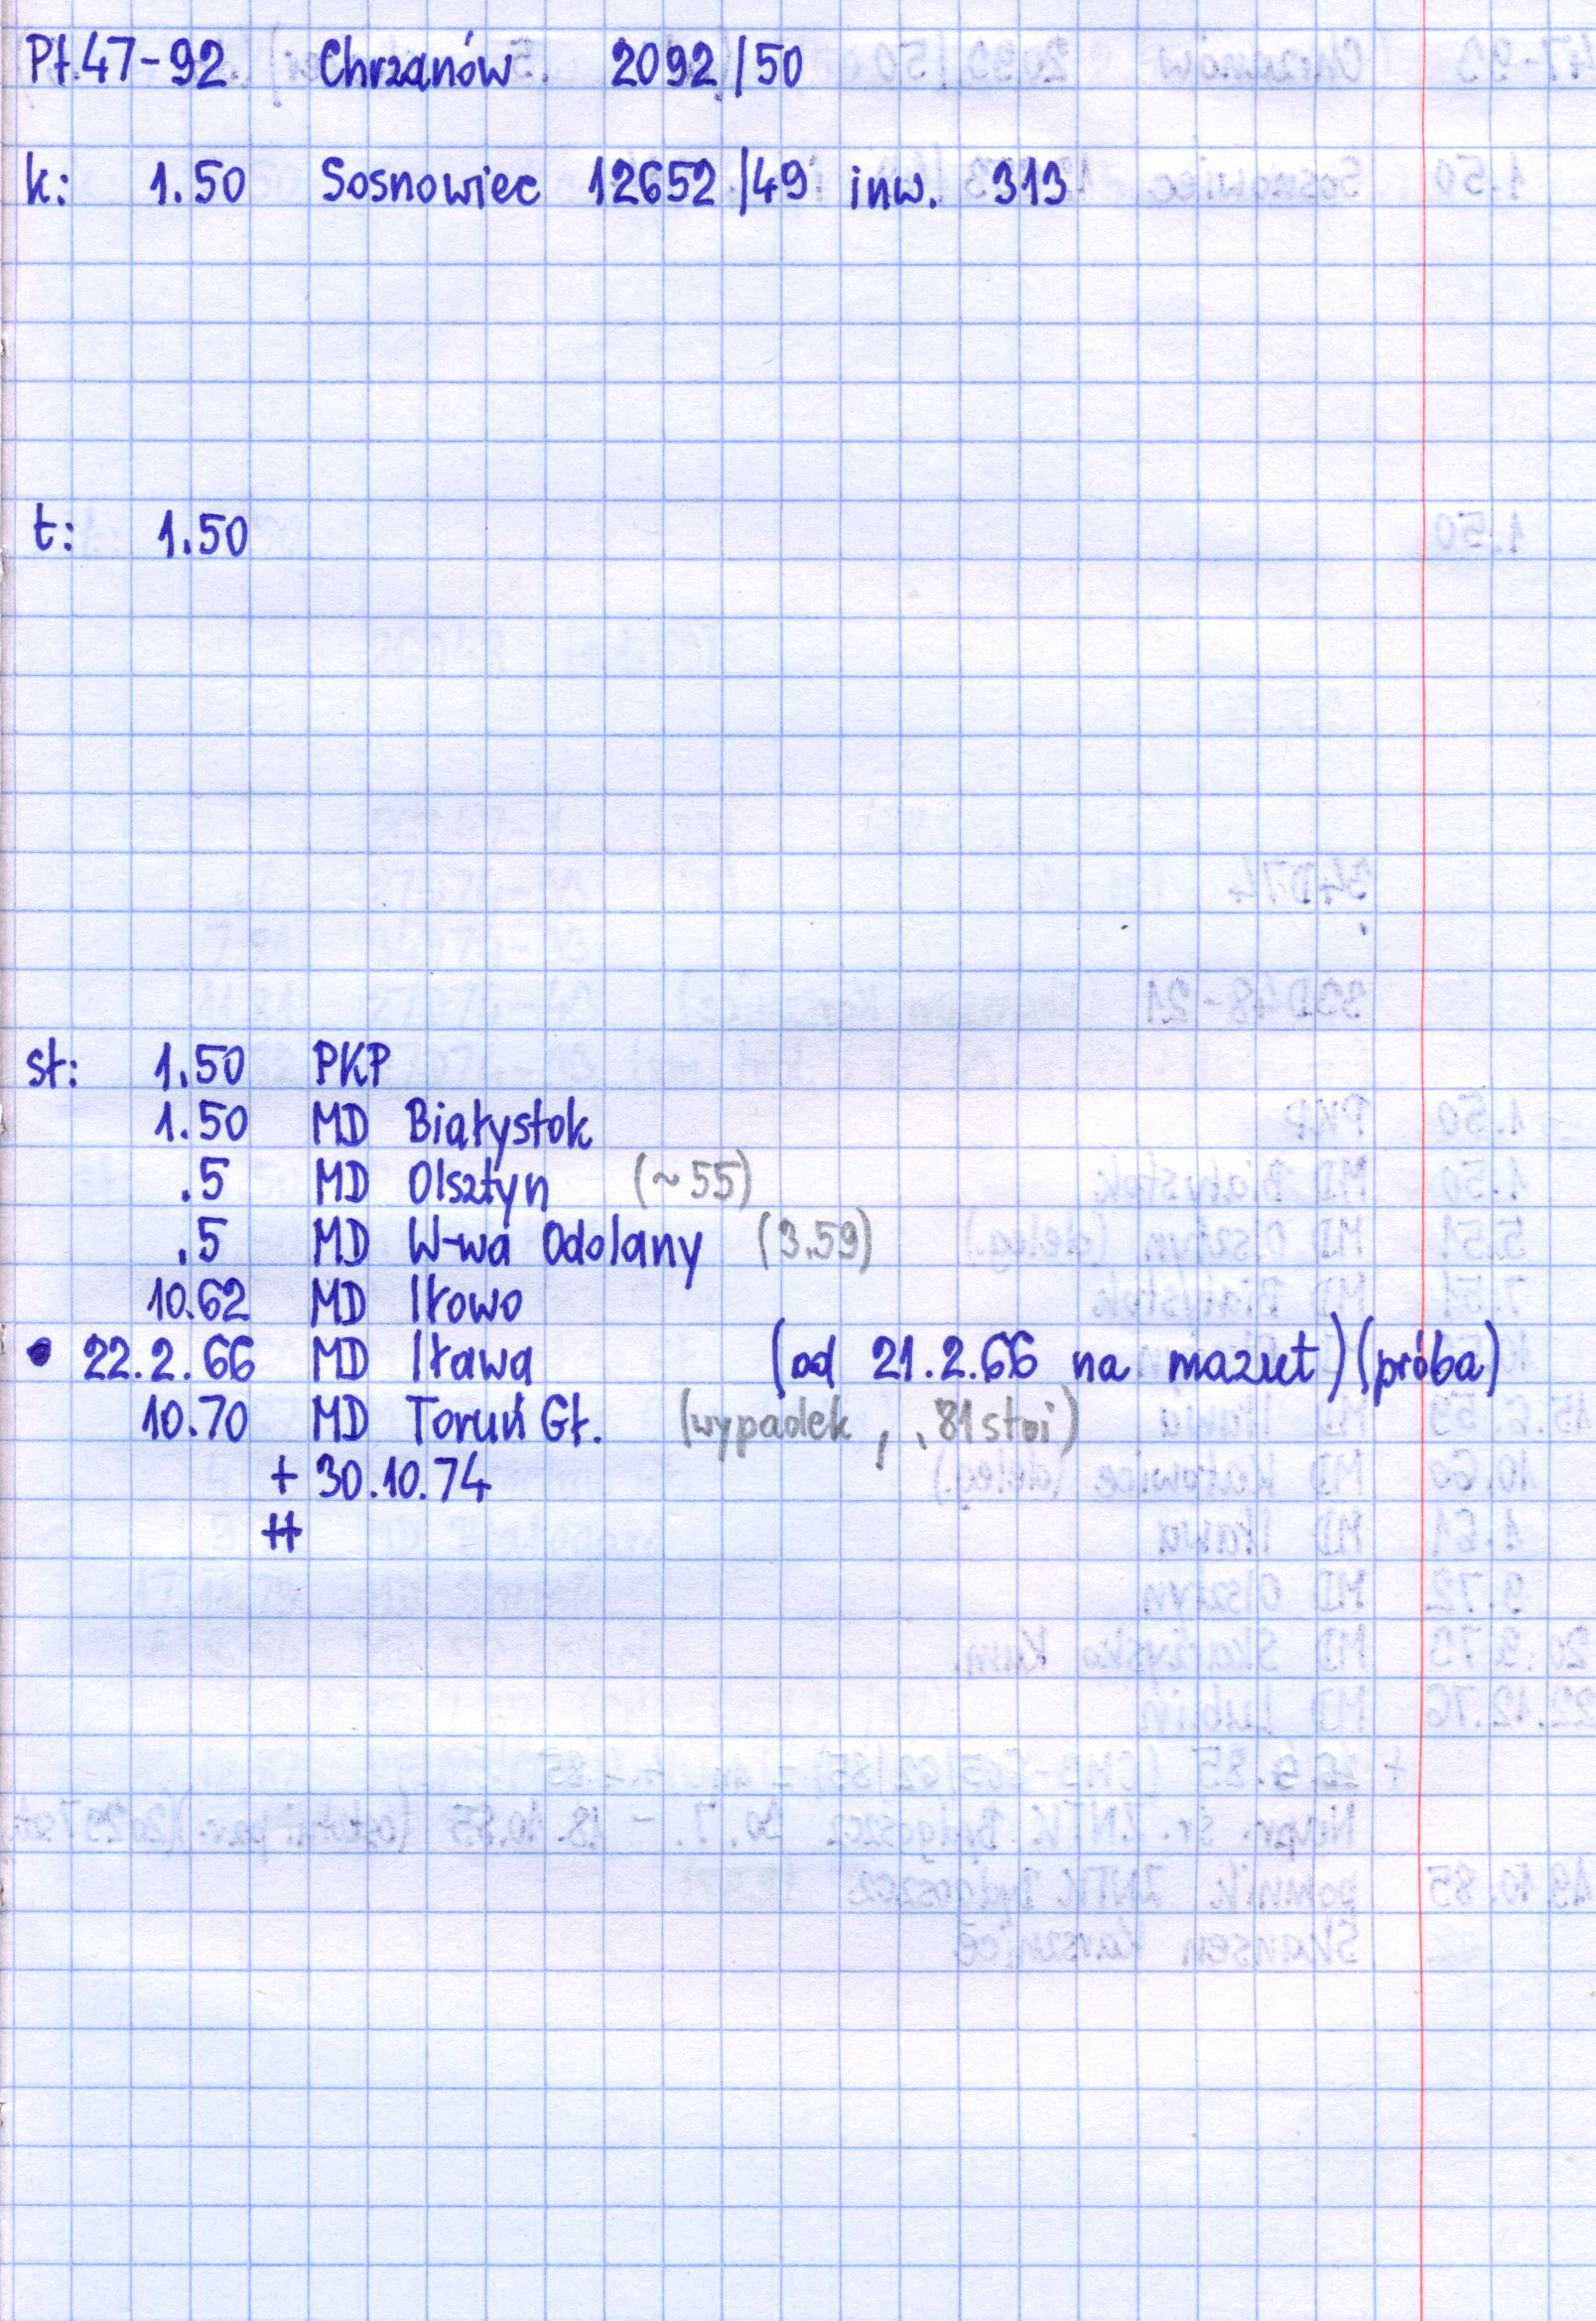 Pt.47-92 Chrzanów 2092/50
k: 1.50 Sosnowiec 12652/49 inw. 313
t: 1.50
st: 1.50 PKP
1.50 MD Białystok
.5 MD Olsztyn (~55)
.5 MD W-wa Odolany (3.59)
10.62 MD Iłowo
• 22.2.66 MD Iława (od 21.2.66 na mazut) (próba)
10.70 MD Toruń Gł. (wypadek, .81 stoi)
+ 30.10.74
++